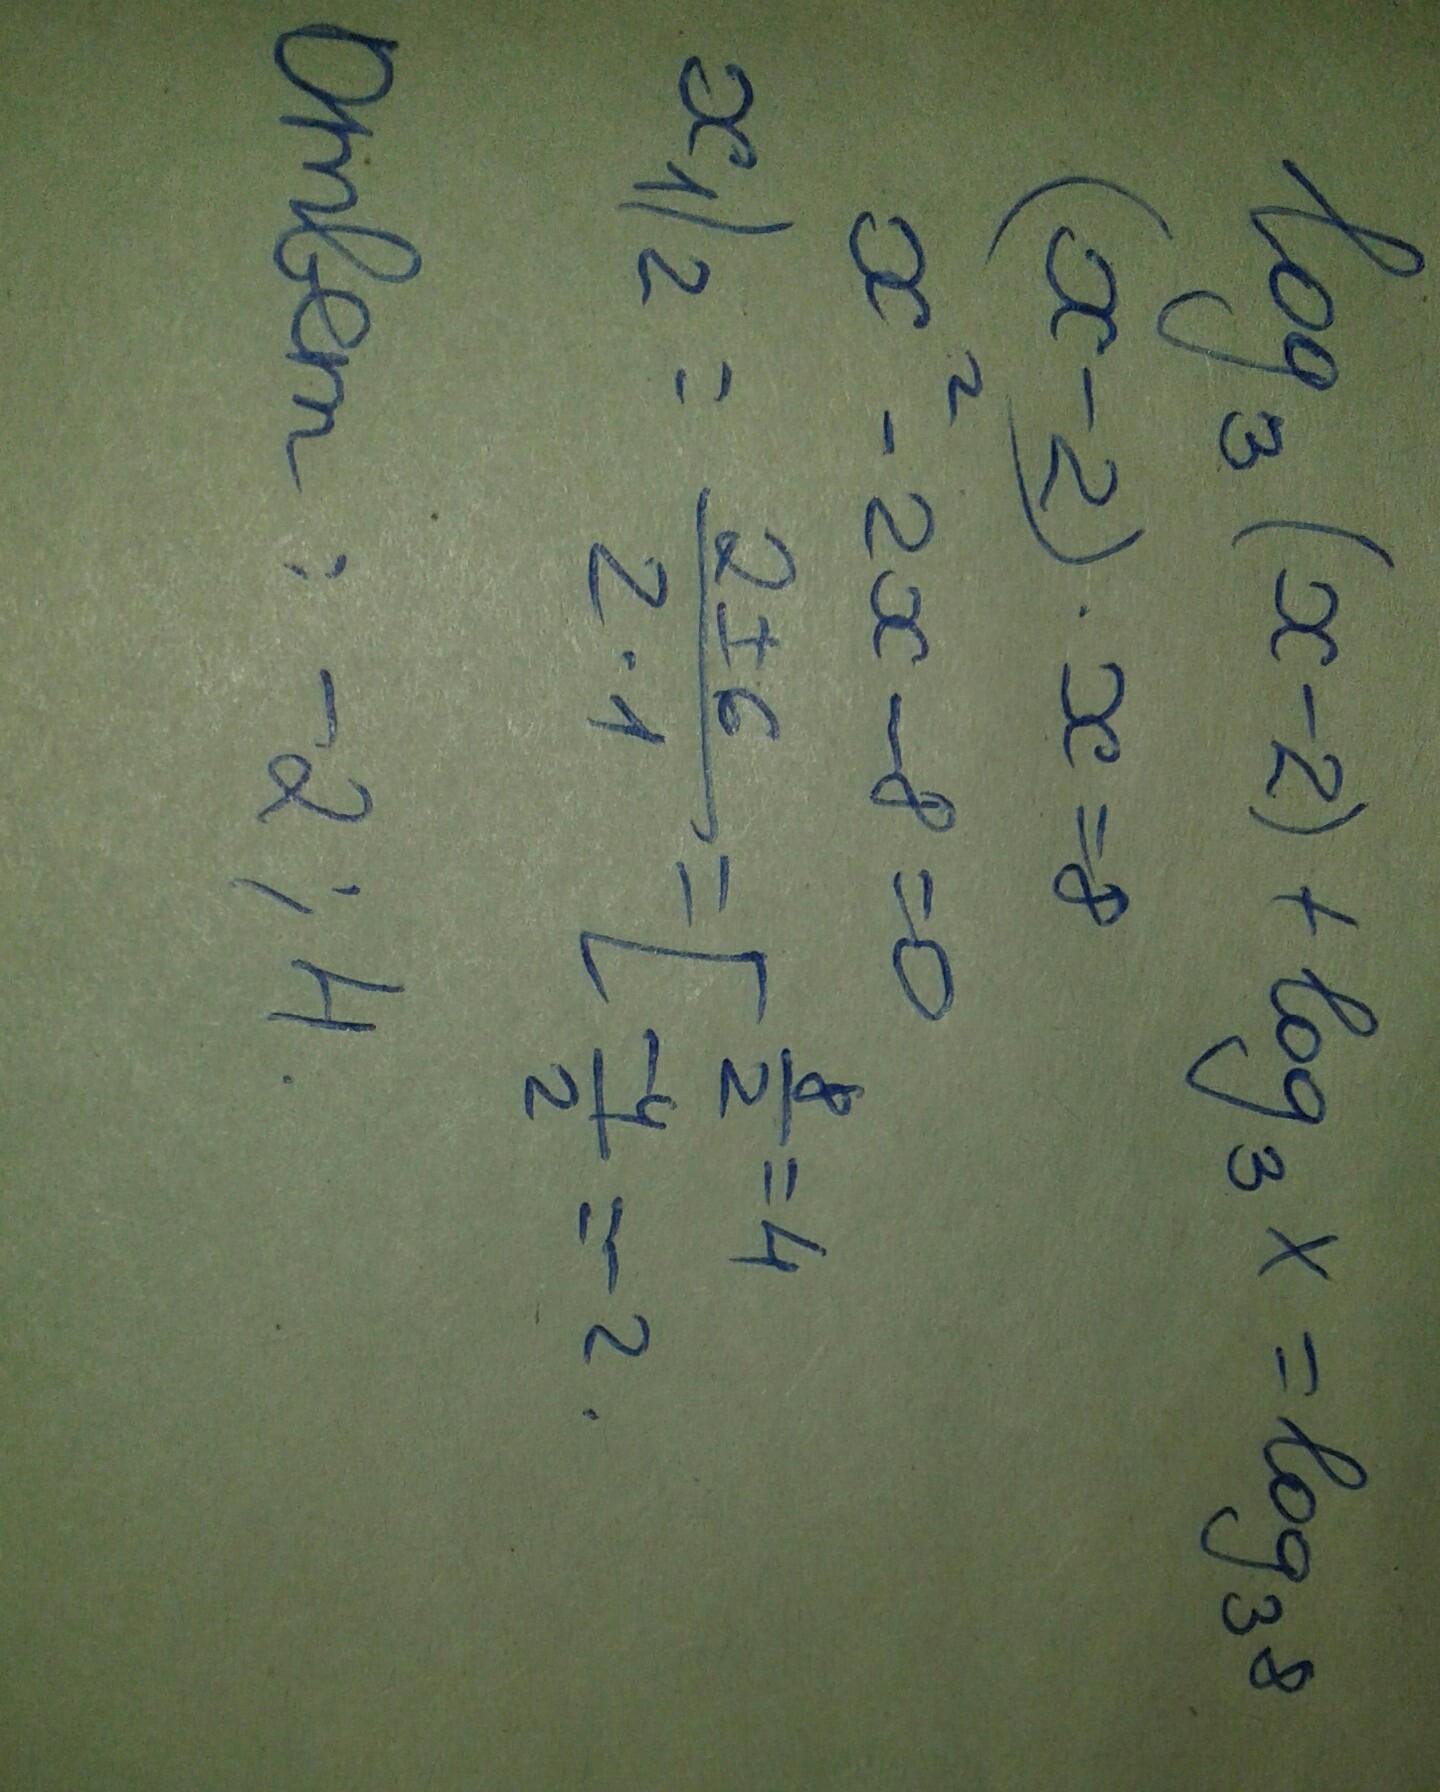 log₃(x-2) + log₃ x = log₃ 8
(x-2)·x = 8
x² - 2x - 8 = 0
x₁/₂ = (2±6)/(2·1) = [ 8/2 = 4
-4/2 = -2.
Ответ: -2; 4.